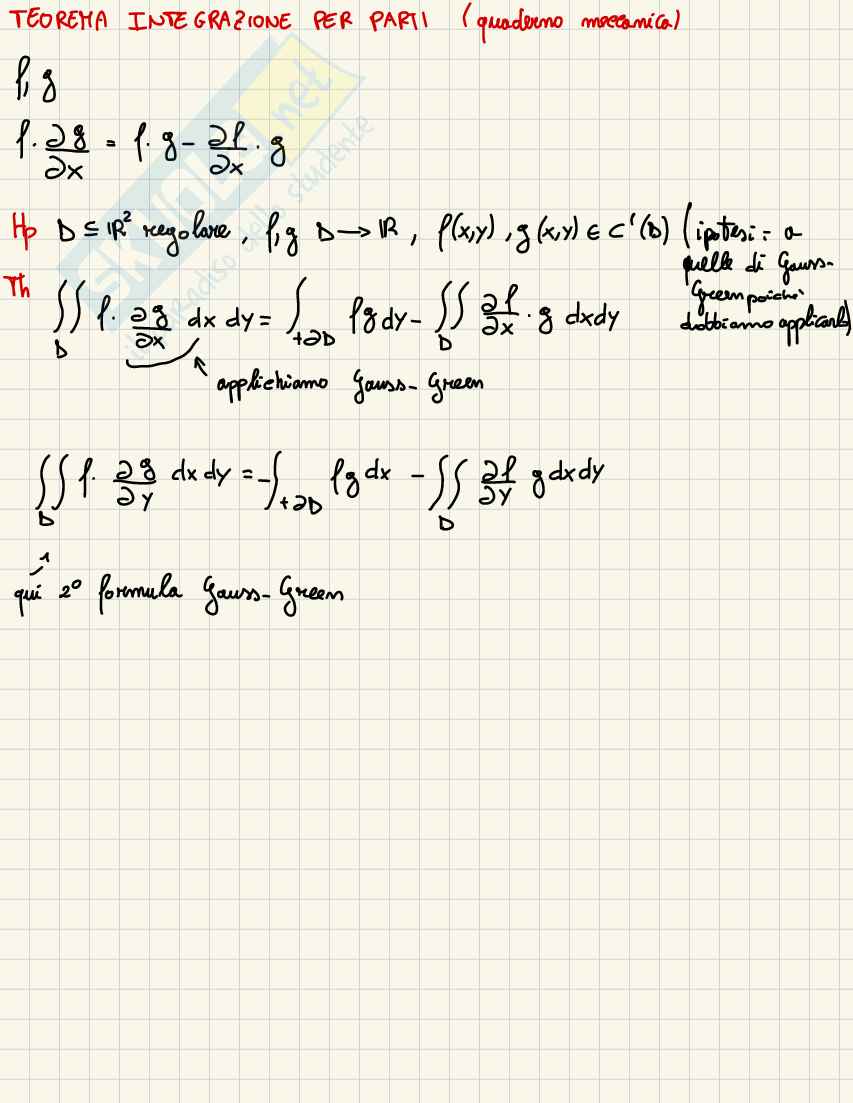 TEOREMA INTEGRAZIONE PER PARTI (quaderno meccanica)
f, g
f · ∂g/∂x = f · g − ∂f/∂x · g
Hp D ⊆ ℝ² regolare, f, g D → ℝ, f(x,y), g(x,y) ∈ C¹(D) (ipotesi = a
quelle di Gauss-
Green poiché
dobbiamo applicarlo)
Th ∬_D f · ∂g/∂x dx dy = ∫_{+∂D} fg dy − ∬_D ∂f/∂x · g dxdy
applichiamo Gauss-Green
∬_D f · ∂g/∂y dx dy = −∫_{+∂D} fg dx − ∬_D ∂f/∂y g dxdy
qui 2° formula Gauss-Green
SKUOLA.net
il paradiso dello studente